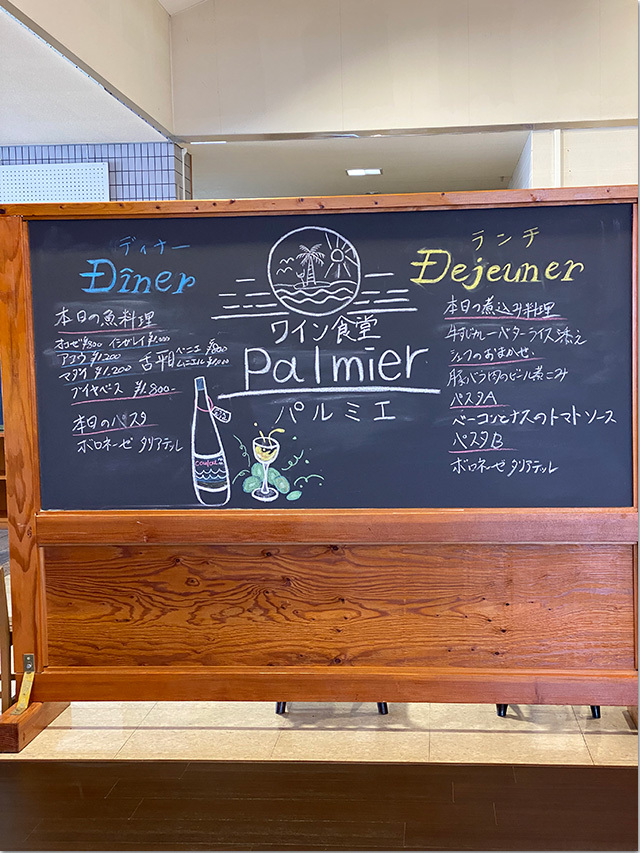 ディナー
Dîner
本日の魚料理
オコゼ¥800 イシガレイ¥1,000
アコウ ¥1,200
舌平目ベニエ ¥800
ムニエル ¥1,000
マダイ ¥1,200
ブイヤベース ¥1,800-
本日のパスタ
ボロネーゼ タリアテッレ
ワイン食堂
Palmier
パルミエ
ランチ
Dejeuner
本日の煮込み料理
牛すじカレーバターライス添え
シェフのおまかせ
豚バラ肉のビール煮こみ
パスタA
ベーコンとナスのトマトソース
パスタB
ボロネーゼ タリアテッレ